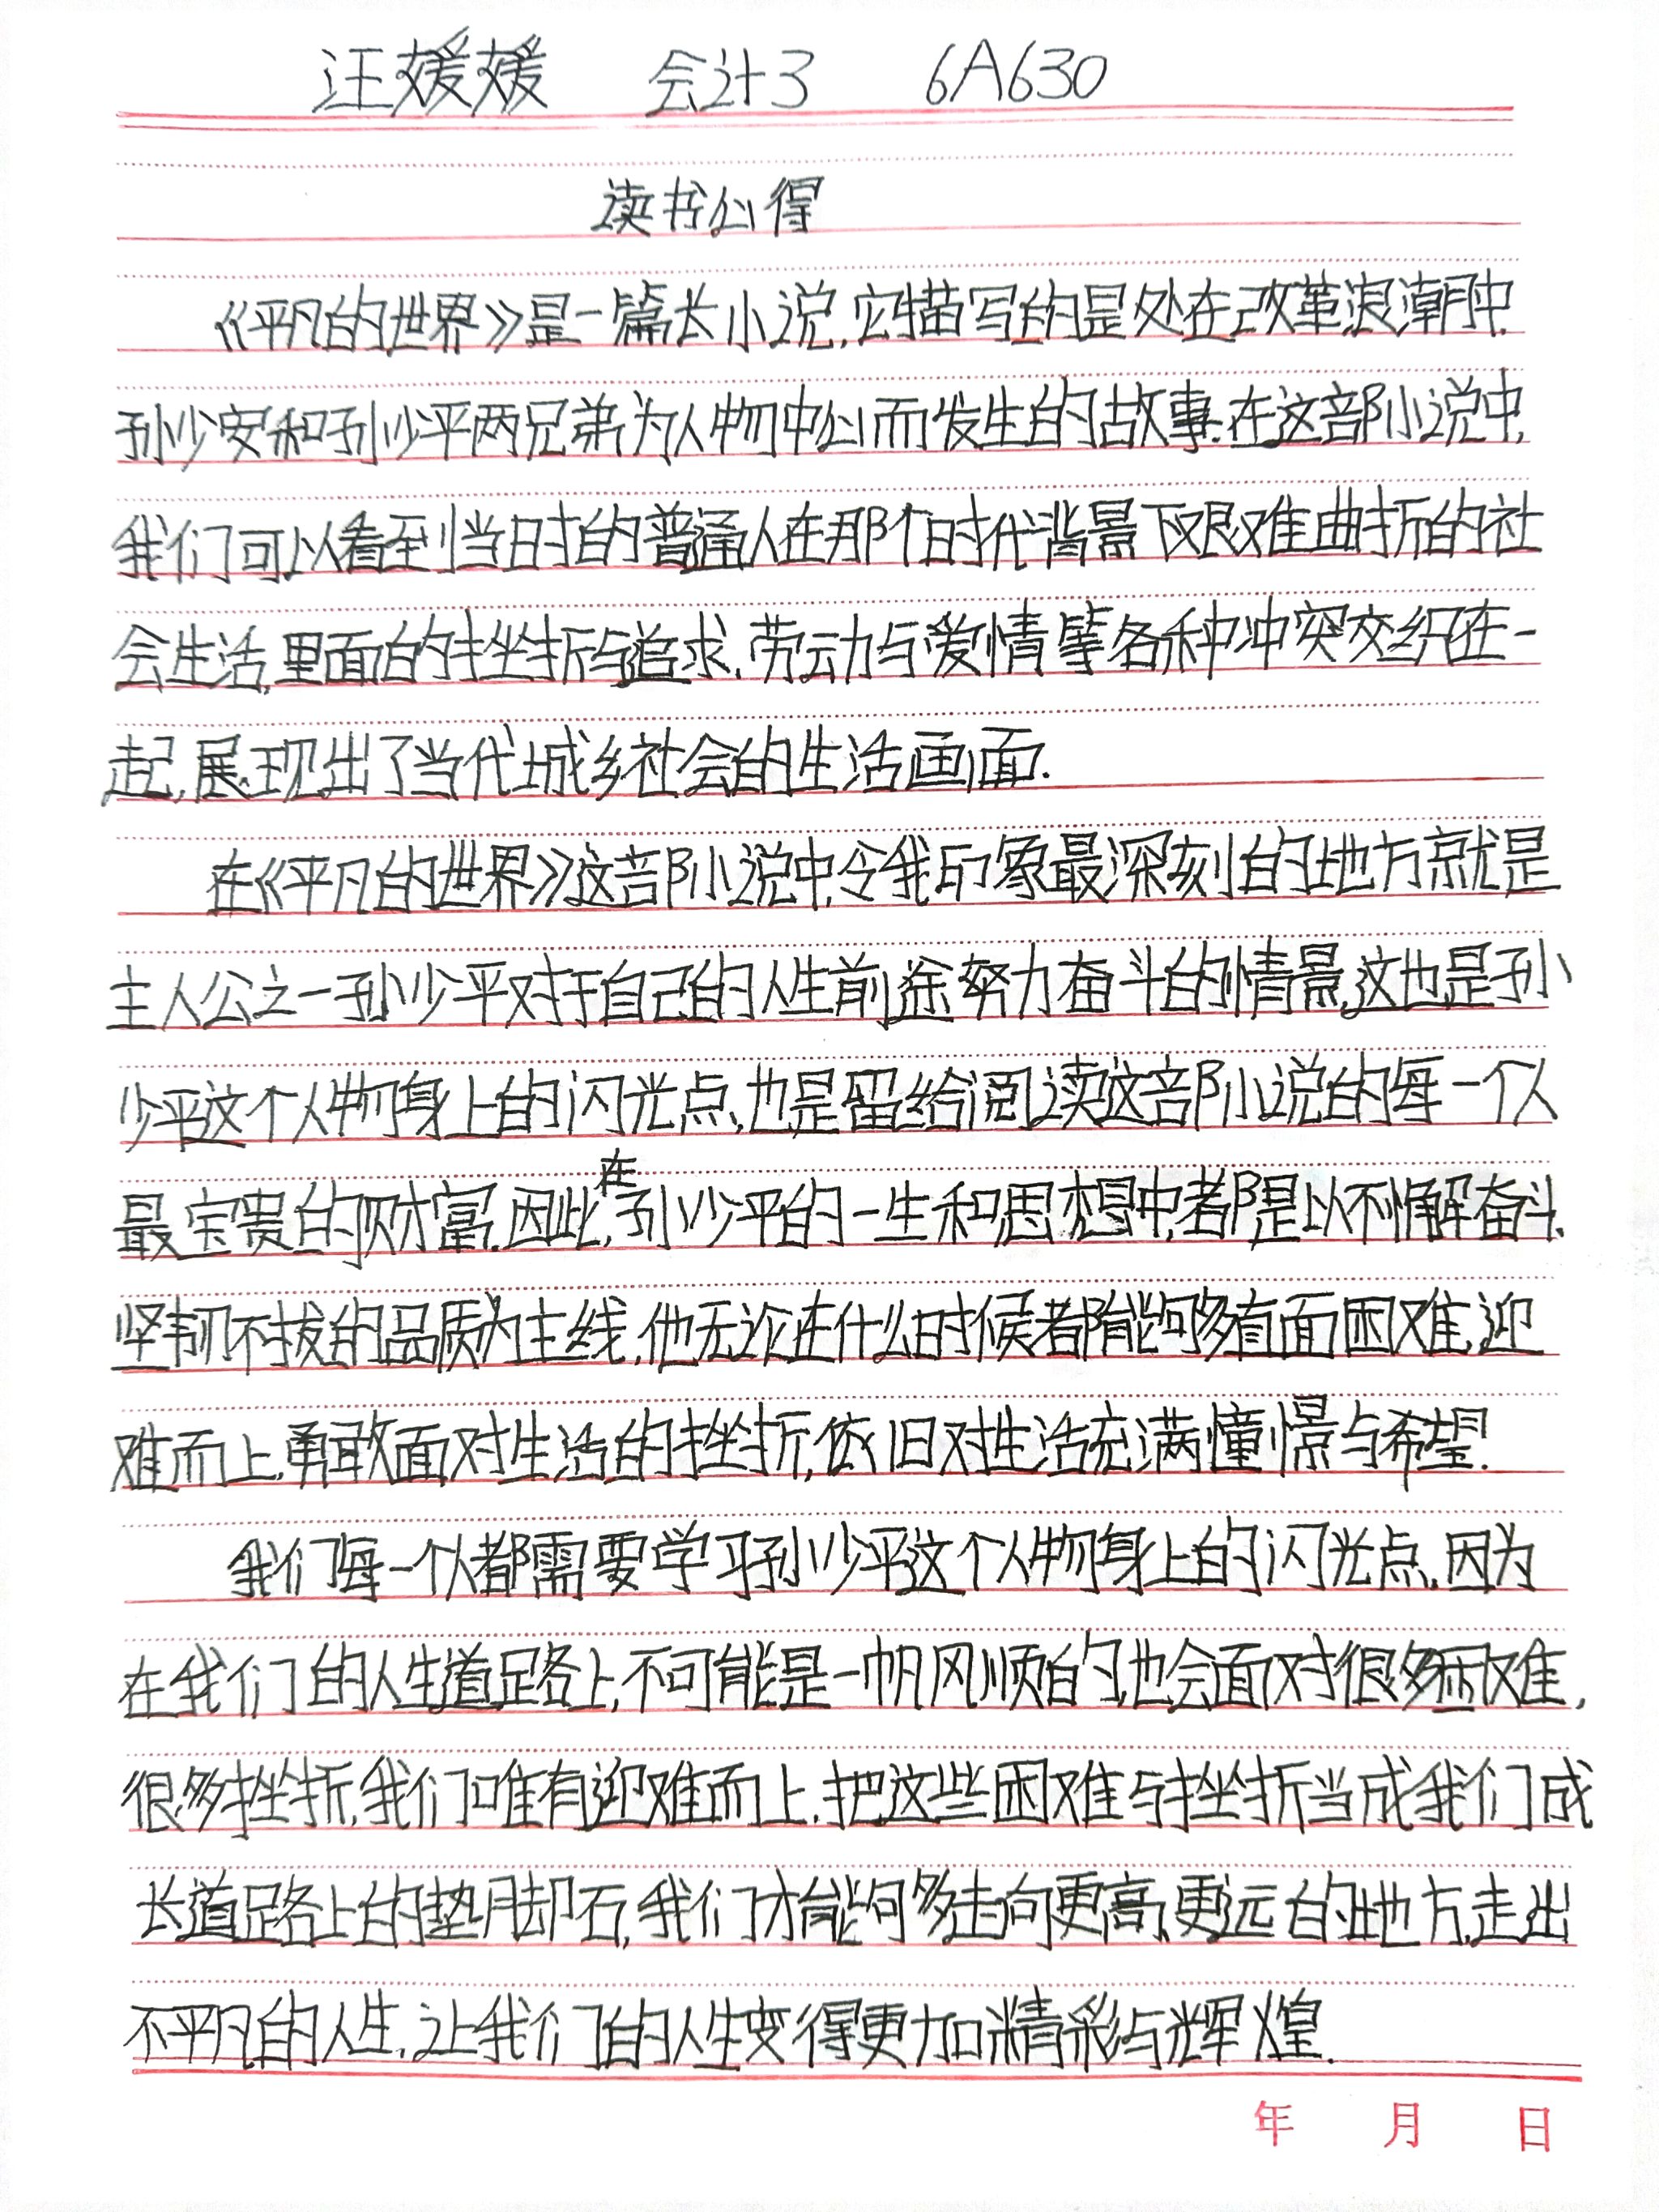 汪媛媛 会计3 6A630
读书心得
《平凡的世界》是一篇长小说,它描写的是处在改革浪潮中,
孙少安和孙少平两兄弟为人物中心而发生的故事.在这部小说中,
我们可以看到当时的普通人在那个时代背景下艰难曲折的社
会生活,里面的挫折与追求、劳动与爱情等各种冲突交织在一
起,展现出了当代城乡社会的生活画面.
在《平凡的世界》这部小说中,令我印象最深刻的地方就是
主人公之一孙少平对于自己的人生前途努力奋斗的情景,这也是孙
少平这个人物身上的闪光点,也是留给阅读这部小说的每一个人
最宝贵的财富.因此,在孙少平的一生和思想中,都是以不懈奋斗、
坚韧不拔的品质为主线,他无论在什么时候都能够直面困难,迎
难而上,勇敢面对生活的挫折,依旧对生活充满憧憬与希望.
我们每一个人都需要学习孙少平这个人物身上的闪光点.因为
在我们的人生道路上,不可能是一帆风顺的,也会面对很多困难,
很多挫折,我们唯有迎难而上,把这些困难与挫折当成我们成
长道路上的垫脚石,我们才能够走向更高、更远的地方,走出
不平凡的人生,让我们的人生变得更加精彩与辉煌.
年 月 日